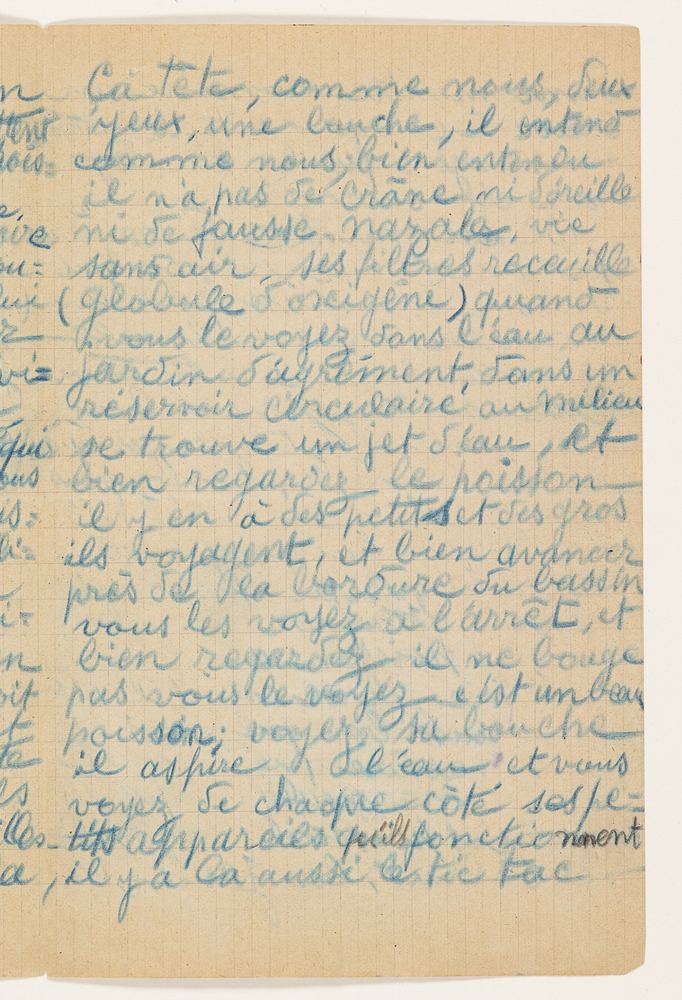 Ça tête, comme nous, deux
yeux, une bouche, il entend
comme nous, bien entendu
il n'a pas de crâne ni d'oreille
ni de fausse nazale, vie
sans air, ses filtres recceuille
(globule d'oxigène) quand
vous le voyez dans l'eau au
jardin d'agrément, dans un
réservoir circulaire au milieu
se trouve un jet d'eau, et
bien regardez le poisson
il y en à des petits et des gros
ils voyagent, et bien avancer
près de la bordure du bassin
vous les voyez à l'arrêt, et
bien regardez il ne bouge
pas vous le voyez c'est un beau
poisson; voyez sa bouche
il aspire de l'eau et vous
voyez de chaque côté ses pe=
tits appareils qu'ils fonctionnent
il y a là aussi le tic tac